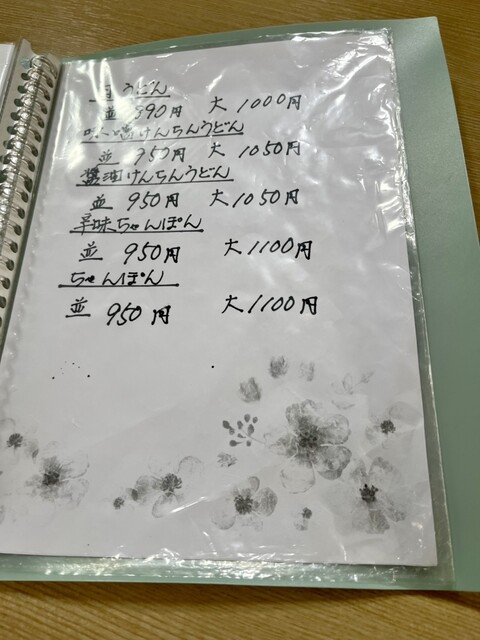 うどん
並 890円 大 1000円
味噌けんちんうどん
並 950円 大 1050円
醤油けんちんうどん
並 950円 大1050円
辛味ちゃんぽん
並 950円 大1100円
ちゃんぽん
並 950円 大1100円